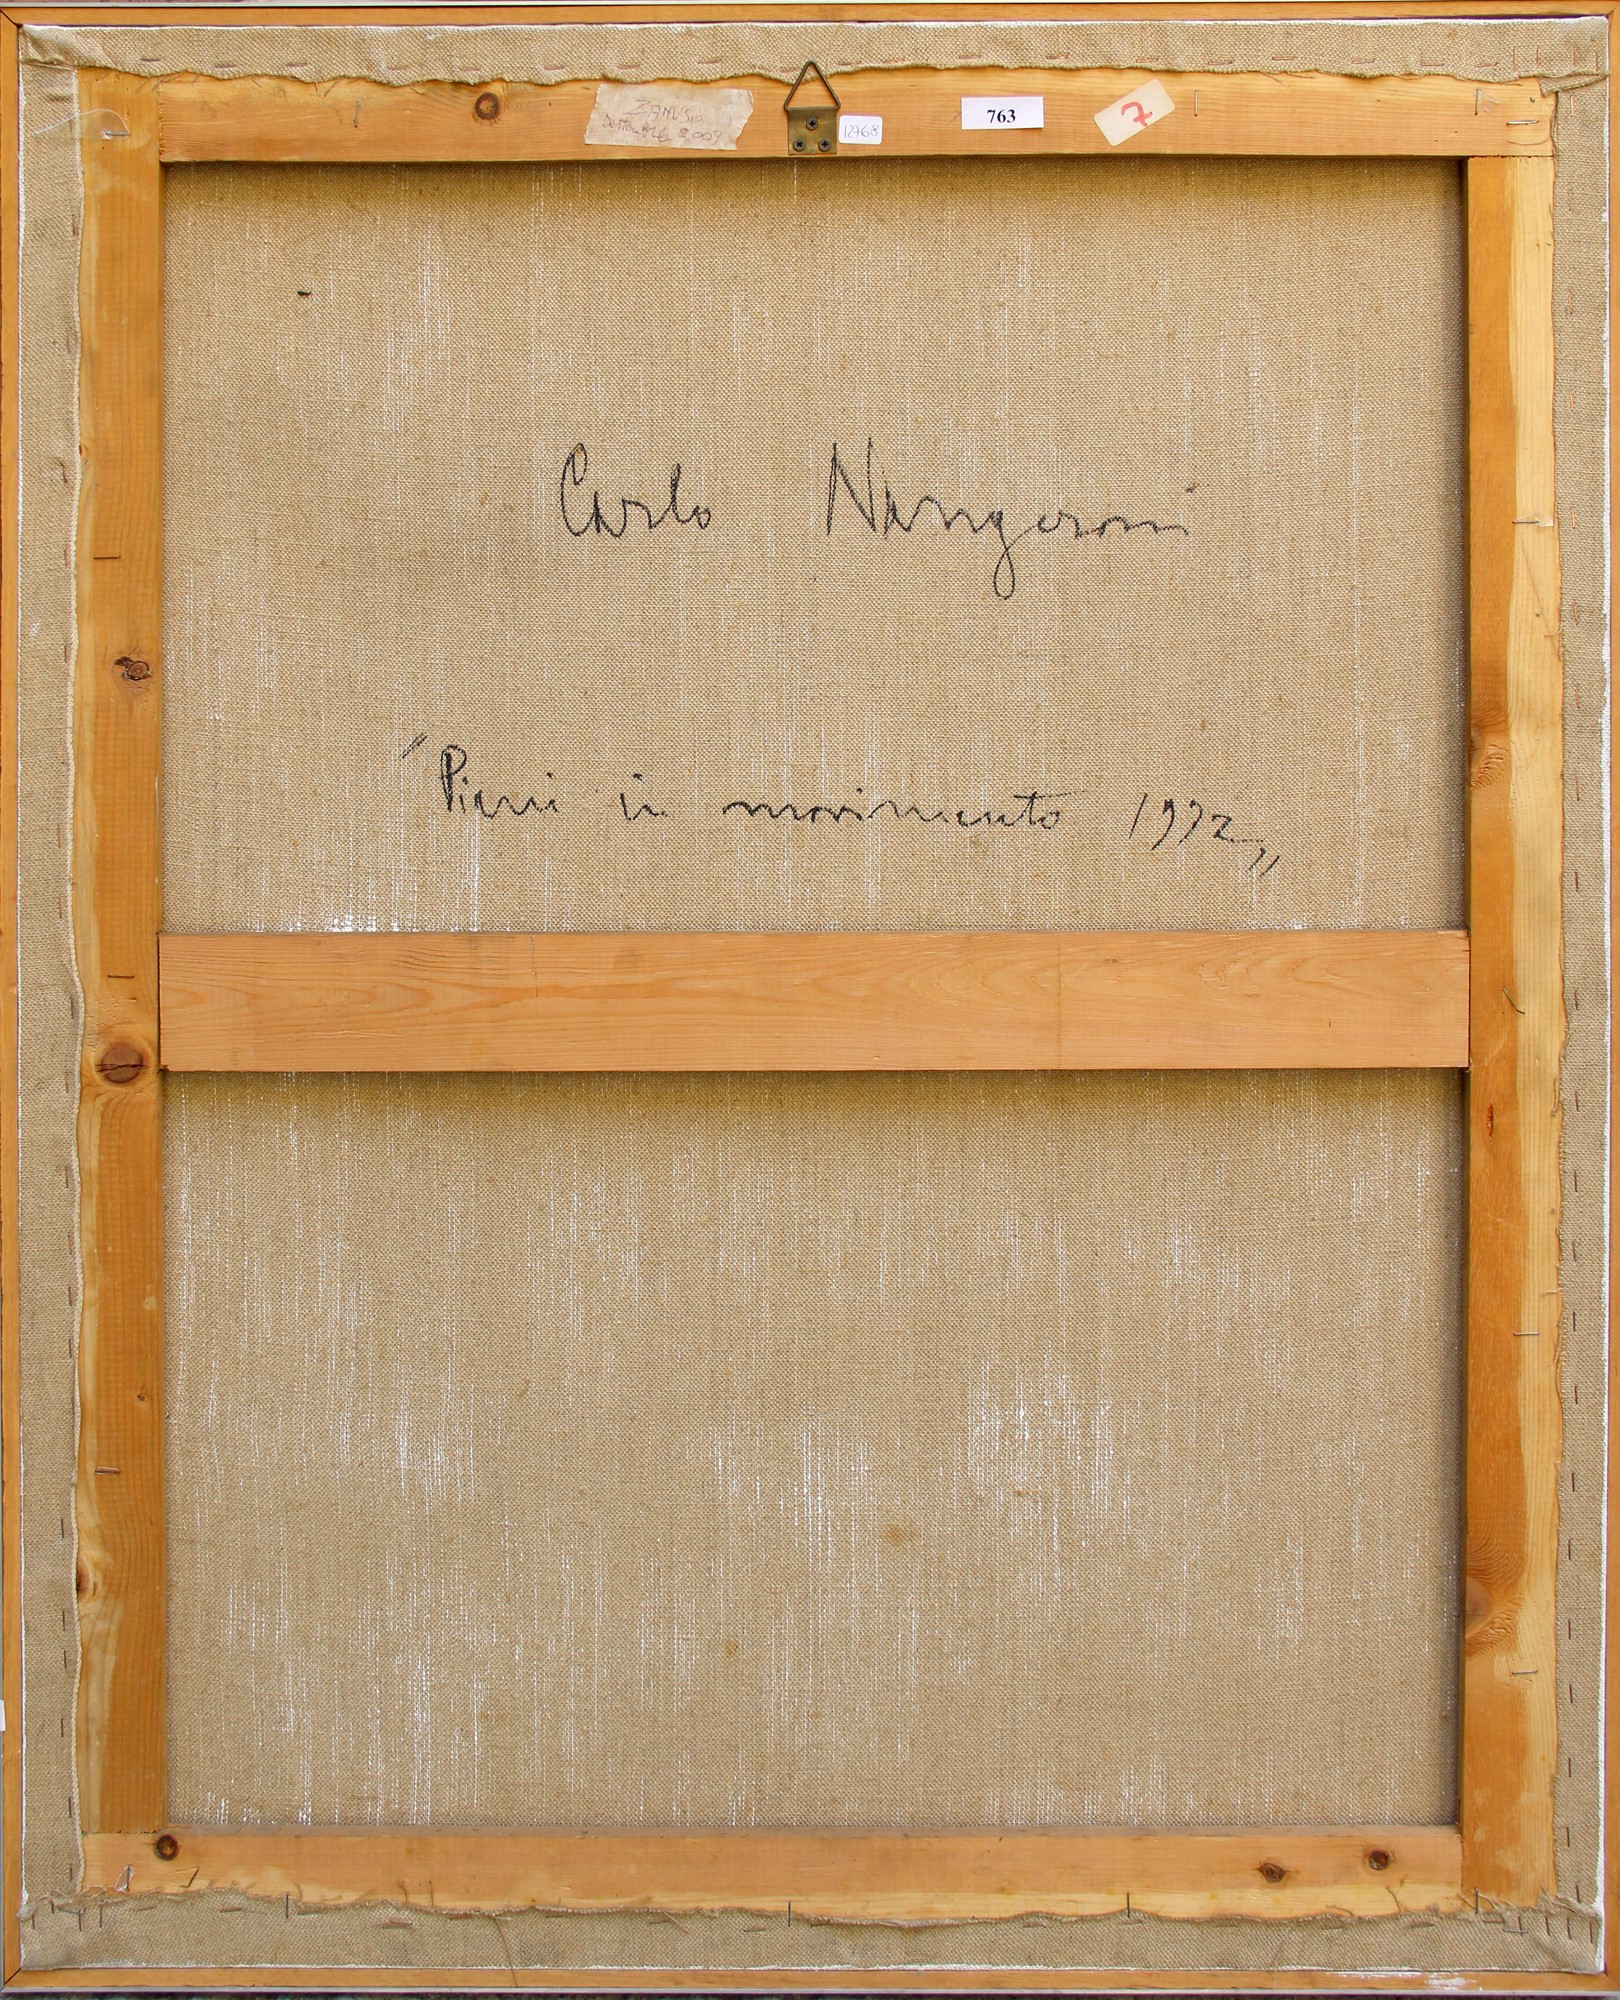 ZANUSIO
Settembre 2009
12768
763
7
Carlo Nangeroni
"Piani in movimento 1972"